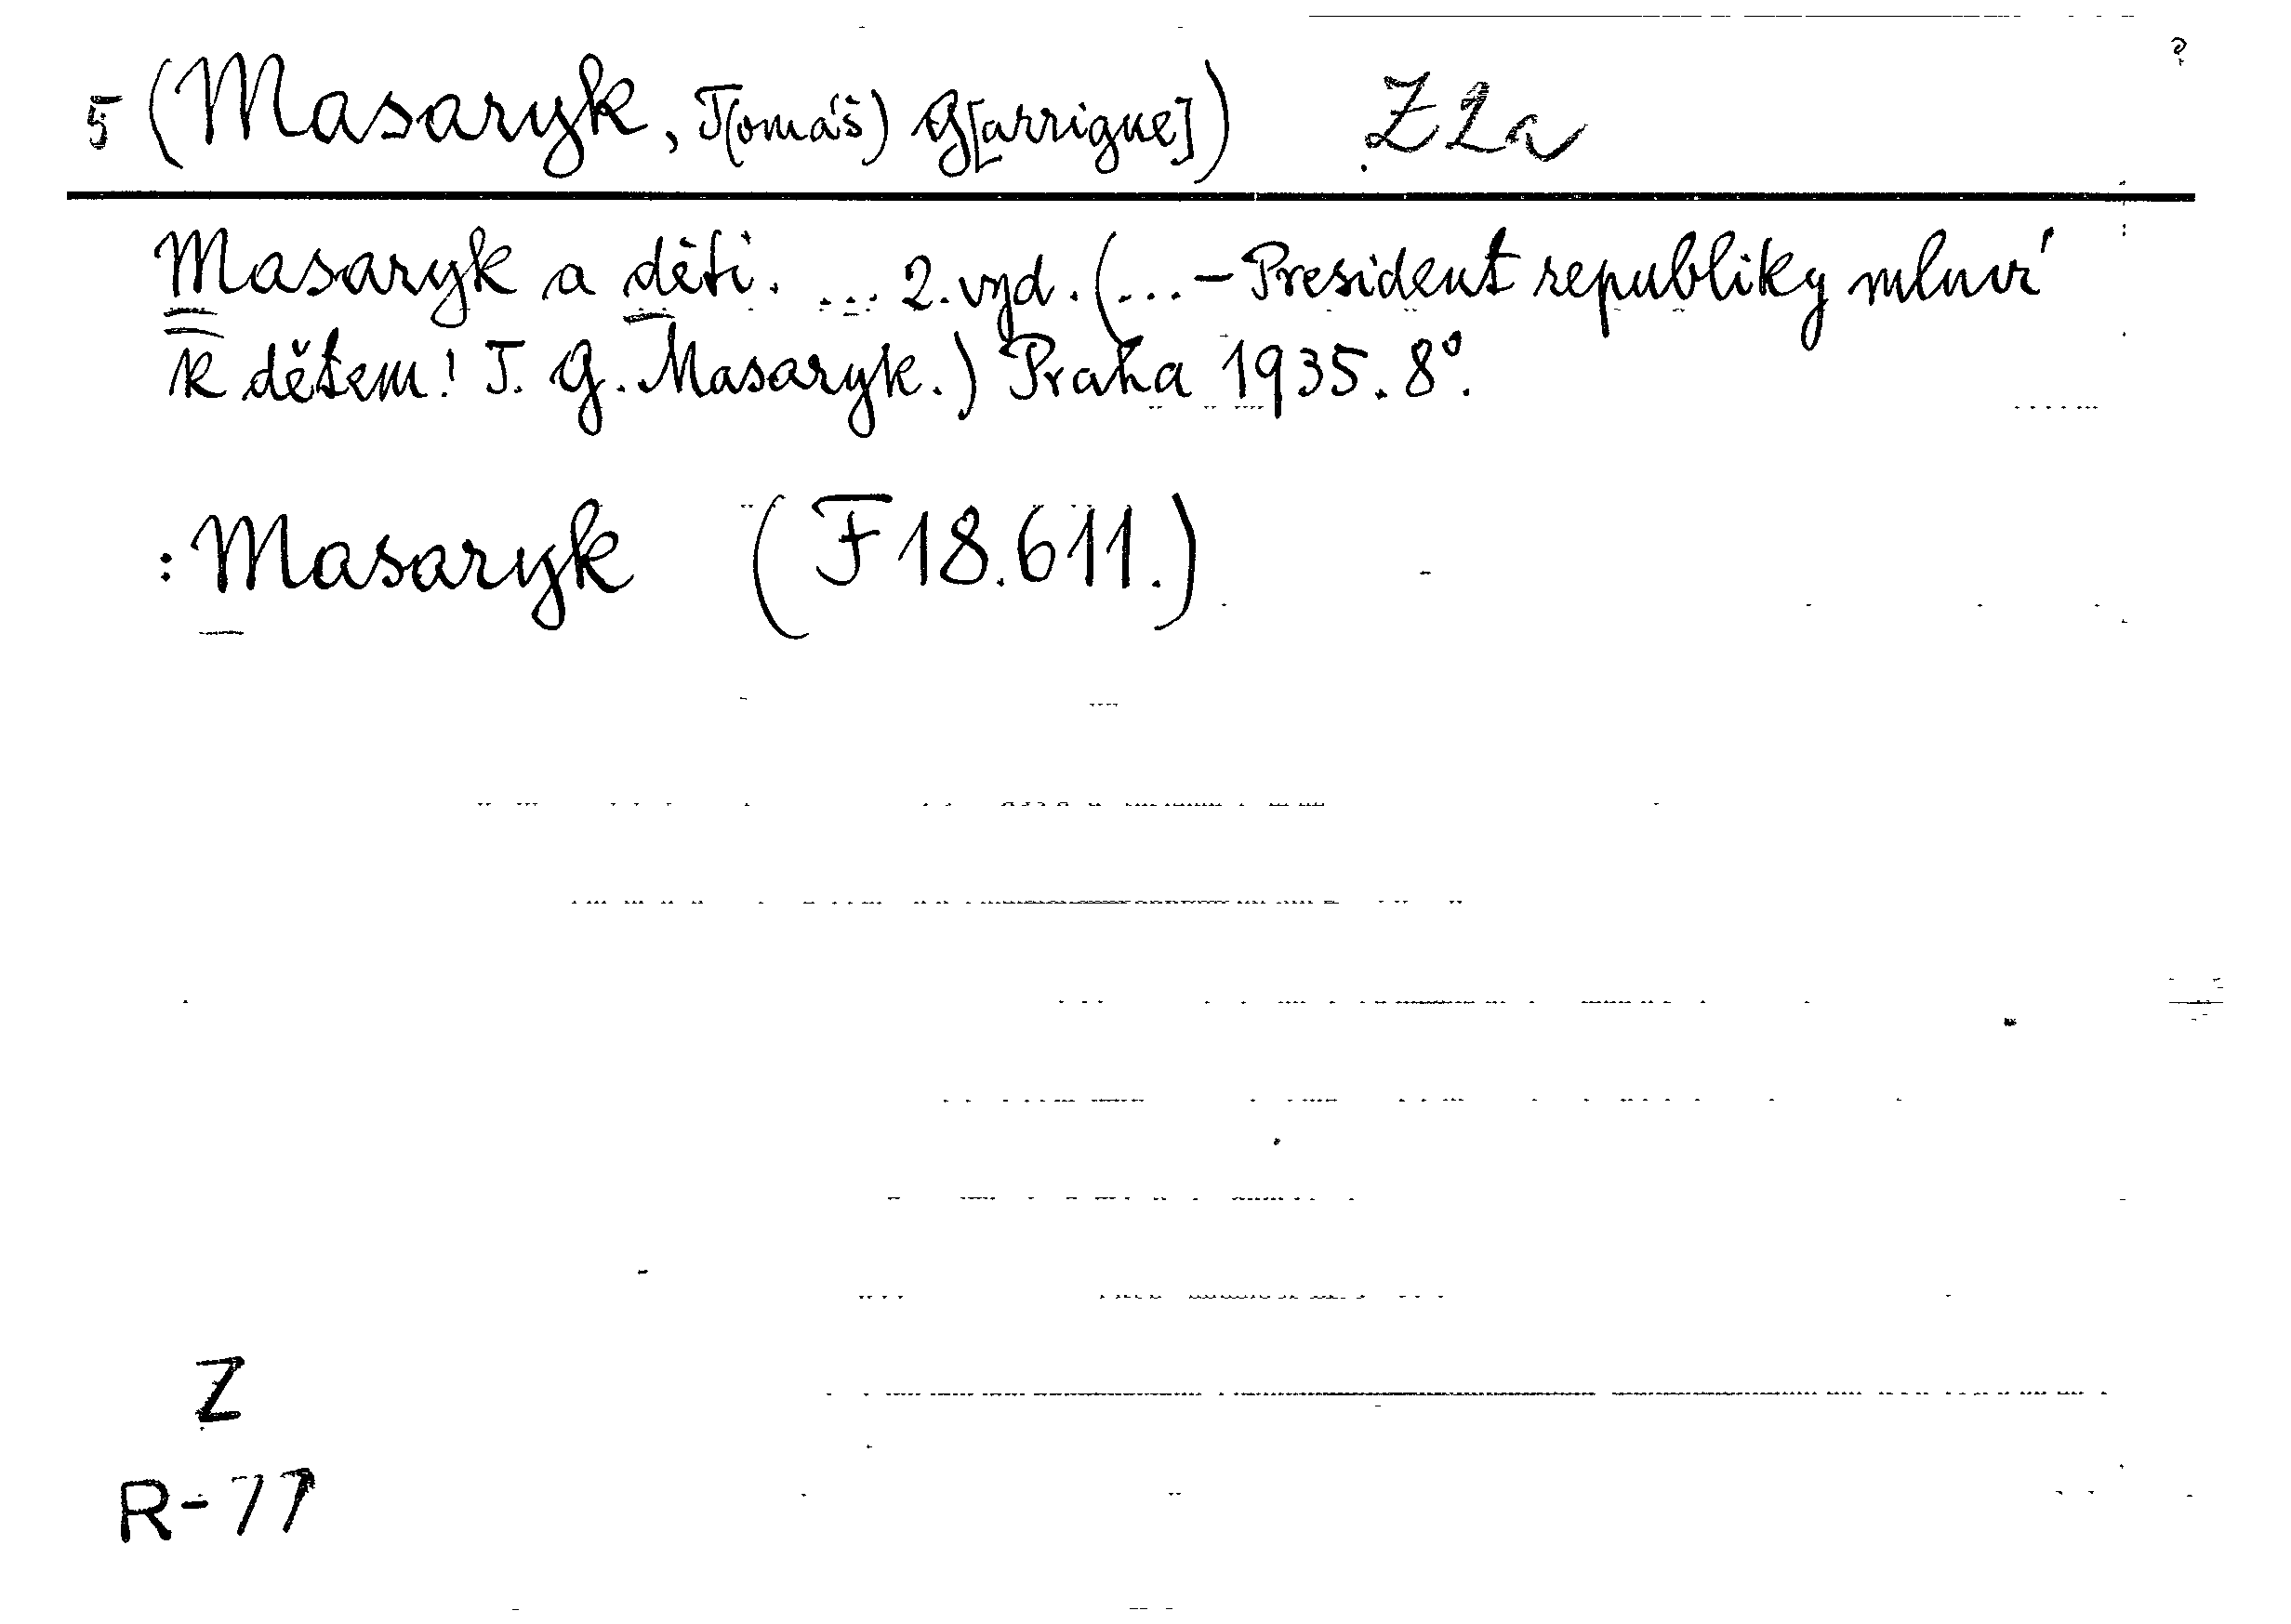 5 (Masaryk, T(omáš) G[arrigue]) Z2a
Masaryk a děti. ... 2. vyd. (... – President republiky mluví
k dětem! T. G. Masaryk.) Praha 1935. 8°.
: Masaryk (F 18.611.)
Z
R-77